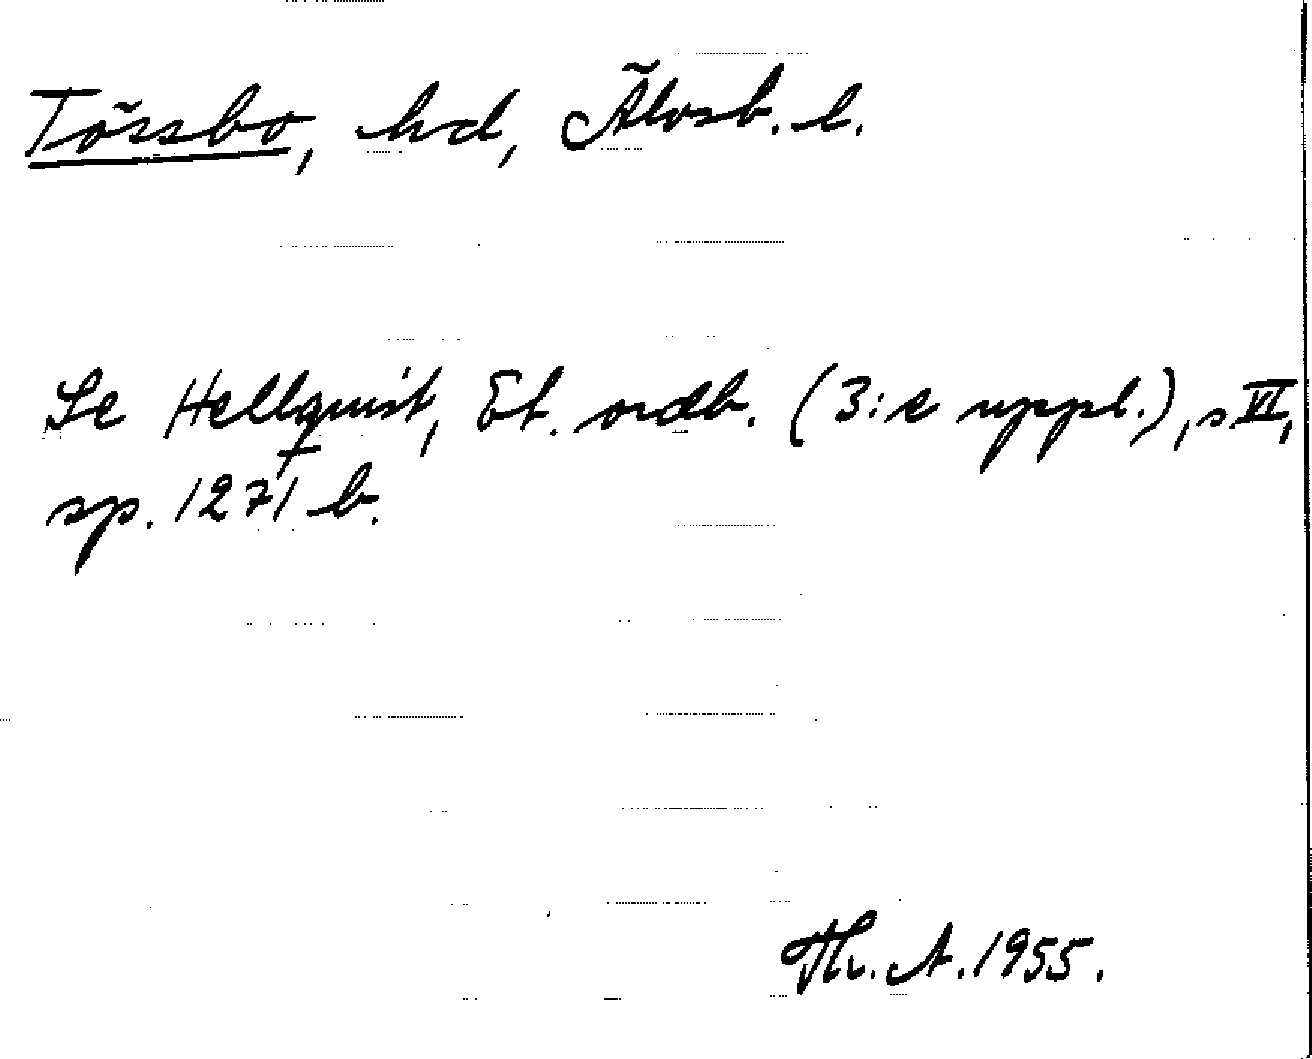 Tössbo, hd, Älvsb. l.
Se Hellquist, Et. ordb. (3:e uppl.), s VI,
sp. 1271 b.
Th. A. 1955.